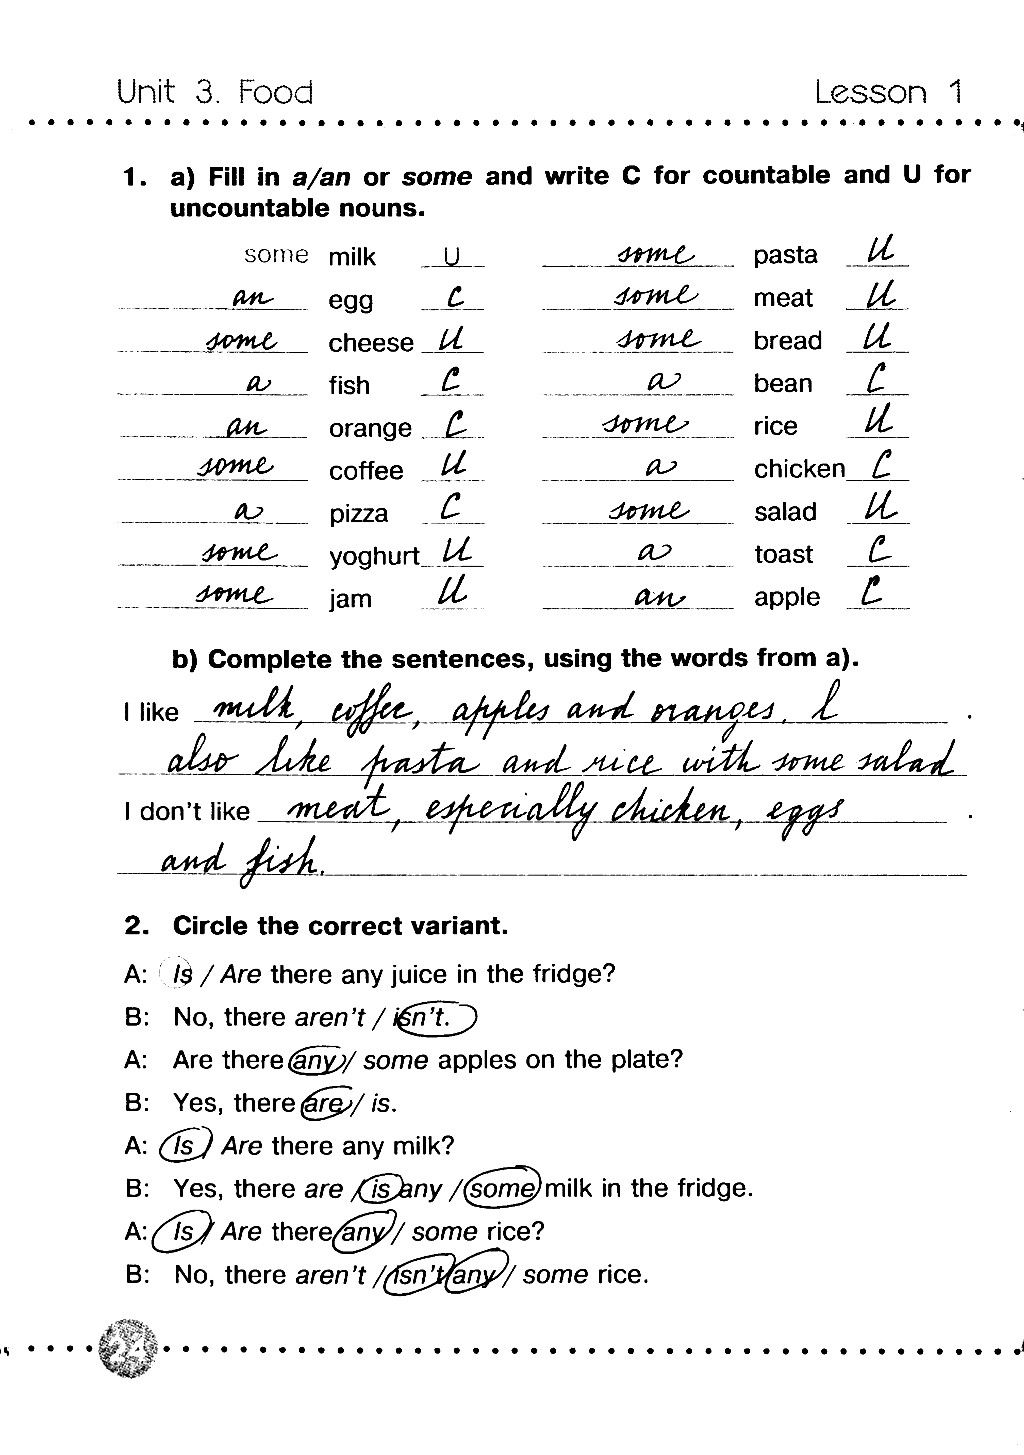 Unit 3. Food Lesson 1
1. a) Fill in a/an or some and write C for countable and U for
uncountable nouns.
some milk U some pasta U
an egg C some meat U
some cheese U some bread U
a fish C a bean C
an orange C some rice U
some coffee U a chicken C
a pizza C some salad U
some yoghurt U a toast C
some jam U an apple C
b) Complete the sentences, using the words from a).
I like milk, coffee, apples and oranges. I .
also like pasta and rice with some salad
I don't like meat, especially chicken, eggs .
and fish.
2. Circle the correct variant.
A: Is / Are there any juice in the fridge?
B: No, there aren't / isn't.
A: Are there any / some apples on the plate?
B: Yes, there are / is.
A: Is / Are there any milk?
B: Yes, there are / is any / some milk in the fridge.
A: Is / Are there any / some rice?
B: No, there aren't / isn't any / some rice.
24